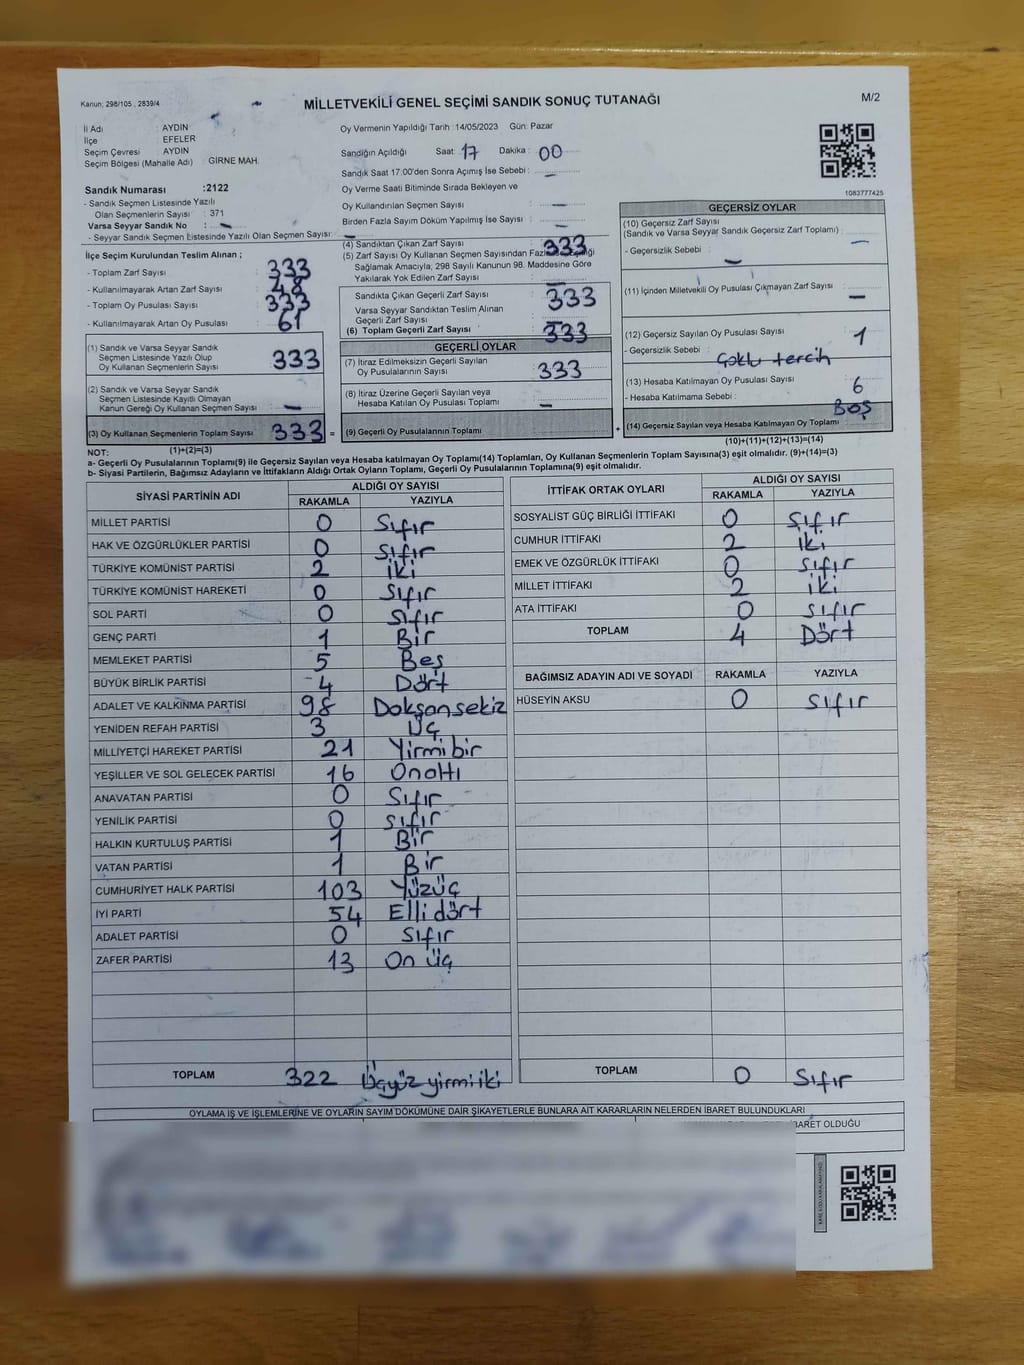 Kanun; 298/105 , 2839/4
MİLLETVEKİLİ GENEL SEÇİMİ SANDIK SONUÇ TUTANAĞI
M/2
İl Adı : AYDIN
İlçe : EFELER
Seçim Çevresi : AYDIN
Seçim Bölgesi (Mahalle Adı) GİRNE MAH.
Sandık Numarası :2122
- Sandık Seçmen Listesinde Yazılı
Olan Seçmenlerin Sayısı : 371
Varsa Seyyar Sandık No : -
- Seyyar Sandık Seçmen Listesinde Yazılı Olan Seçmen Sayısı: -
Oy Vermenin Yapıldığı Tarih :14/05/2023 Gün: Pazar
Sandığın Açıldığı Saat: 17 Dakika : 00
Sandık Saat 17:00'den Sonra Açımış İse Sebebi : -
Oy Verme Saati Bitiminde Sırada Bekleyen ve
Oy Kullandırılan Seçmen Sayısı : -
Birden Fazla Sayım Döküm Yapılmış İse Sayısı : -
1083777425
İlçe Seçim Kurulundan Teslim Alınan ;
- Toplam Zarf Sayısı : 333
- Kullanılmayarak Artan Zarf Sayısı : 48
- Toplam Oy Pusulası Sayısı : 333
- Kullanılmayarak Artan Oy Pusulası : 61
(1) Sandık ve Varsa Seyyar Sandık
Seçmen Listesinde Yazılı Olup
Oy Kullanan Seçmenlerin Sayısı : 333
(2) Sandık ve Varsa Seyyar Sandık
Seçmen Listesinde Kayıtlı Olmayan
Kanun Gereği Oy Kullanan Seçmen Sayısı : -
(3) Oy Kullanan Seçmenlerin Toplam Sayısı 333 =
(4) Sandıktan Çıkan Zarf Sayısı : 333
(5) Zarf Sayısı Oy Kullanan Seçmen Sayısından
Sağlamak Amacıyla; 298 Sayılı Kanunun 98. Maddesine Göre
Yakılarak Yok Edilen Zarf Sayısı : -
Sandıkta Çıkan Geçerli Zarf Sayısı : 333
Varsa Seyyar Sandıktan Teslim Alınan
Geçerli Zarf Sayısı :
(6) Toplam Geçerli Zarf Sayısı : 333
GEÇERLİ OYLAR
(7) İtiraz Edilmeksizin Geçerli Sayılan
Oy Pusulalarının Sayısı : 333
(8) İtiraz Üzerine Geçerli Sayılan veya
Hesaba Katılan Oy Pusulası Toplamı : -
(9) Geçerli Oy Pusulalarının Toplamı +
GEÇERSİZ OYLAR
(10) Geçersiz Zarf Sayısı
(Sandık ve Varsa Seyyar Sandık Geçersiz Zarf Toplamı) : -
- Geçersizlik Sebebi : -
(11) İçinden Milletvekili Oy Pusulası Çıkmayan Zarf Sayısı : -
(12) Geçersiz Sayılan Oy Pusulası Sayısı : 1
- Geçersizlik Sebebi : Çoklu tercih
(13) Hesaba Katılmayan Oy Pusulası Sayısı : 6
- Hesaba Katılmama Sebebi : Boş
(14) Geçersiz Sayılan veya Hesaba Katılmayan Oy Toplamı
(10)+(11)+(12)+(13)=(14)
NOT: (1)+(2)=(3)
a- Geçerli Oy Pusulalarının Toplamı(9) ile Geçersiz Sayılan veya Hesaba katılmayan Oy Toplamı(14) Toplamları, Oy Kullanan Seçmenlerin Toplam Sayısına(3) eşit olmalıdır. (9)+(14)=(3)
b- Siyasi Partilerin, Bağımsız Adayların ve İttifakların Aldığı Ortak Oyların Toplamı, Geçerli Oy Pusulalarının Toplamına(9) eşit olmalıdır.
SİYASİ PARTİNİN ADI ALDIĞI OY SAYISI
RAKAMLA YAZIYLA
MİLLET PARTİSİ 0 Sıfır
HAK VE ÖZGÜRLÜKLER PARTİSİ 0 Sıfır
TÜRKİYE KOMÜNİST PARTİSİ 2 iki
TÜRKİYE KOMÜNİST HAREKETİ 0 Sıfır
SOL PARTİ 0 Sıfır
GENÇ PARTİ 1 Bir
MEMLEKET PARTİSİ 5 Beş
BÜYÜK BİRLİK PARTİSİ 4 Dört
ADALET VE KALKINMA PARTİSİ 98 Doksansekiz
YENİDEN REFAH PARTİSİ 3 Üç
MİLLİYETÇİ HAREKET PARTİSİ 21 Yirmibir
YEŞİLLER VE SOL GELECEK PARTİSİ 16 Onaltı
ANAVATAN PARTİSİ 0 Sıfır
YENİLİK PARTİSİ 0 sıfır
HALKIN KURTULUŞ PARTİSİ 1 Bir
VATAN PARTİSİ 1 Bir
CUMHURİYET HALK PARTİSİ 103 Yüzüç
İYİ PARTİ 54 Elli dört
ADALET PARTİSİ 0 Sıfır
ZAFER PARTİSİ 13 On üç
TOPLAM 322 Üçyüz yirmi iki
İTTİFAK ORTAK OYLARI ALDIĞI OY SAYISI
RAKAMLA YAZIYLA
SOSYALİST GÜÇ BİRLİĞİ İTTİFAKI 0 Sıfır
CUMHUR İTTİFAKI 2 iki
EMEK VE ÖZGÜRLÜK İTTİFAKI 0 sıfır
MİLLET İTTİFAKI 2 iki
ATA İTTİFAKI 0 sıfır
TOPLAM 4 Dört
BAĞIMSIZ ADAYIN ADI VE SOYADI RAKAMLA YAZIYLA
HÜSEYİN AKSU 0 sıfır
TOPLAM 0 Sıfır
OYLAMA İŞ VE İŞLEMLERİNE VE OYLARIN SAYIM DÖKÜMÜNE DAİR ŞİKAYETLERLE BUNLARA AİT KARARLARIN NELERDEN İBARET BULUNDUKLARI
İBARET OLDUĞU